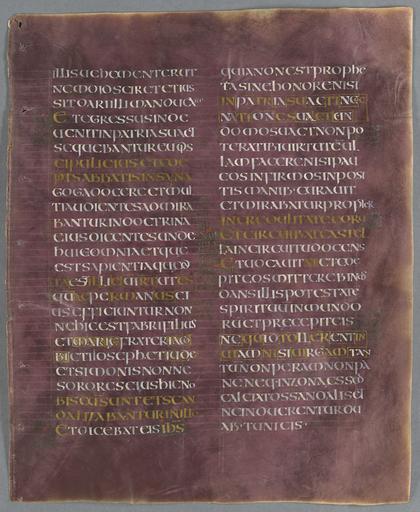 ILLIS UEHEMENTER UT
NEMO ID SCIRET ET IUS
SIT DARI ILLI MANDUCAR
ET EGRESSUS INDE
UENIT IN PATRIA SUA ET
SEQUEBANTUR EU DIS
CIPULI EIUS ET COE
PIT SABBATIS IN SYNA
GOGA DOCERE ET MUL
TI AUDIENTES ADMIRA
BANTUR IN DOCTRINA
EIUS DICENTES UNDE
HUIC OMNIA ET QUE
EST SAPIENTIA QUE DA
TA EST ILLI ET UIRTUTES
QUAE PER MANUS EI
US EFFICIUNTUR NON
NE HIC EST FABRI FILIUS
ET MARIE FRATER IACO
BI ET IOSEPH ET IUDE
ET SIMONIS NONNE
SORORES EIUS HIC NO
BISCU SUNT ET SCAN
DALIZABANTUR IN ILLO
ET DICEBAT EIS IHS
QUIA NON EST PROPHE
TA SINE HONORE NISI
IN PATRIA SUA ET IN COG
NATIONE SUA ET IN
DOMO SUA ET NON PO
TERAT IBI UIRTUTE UL
LAM FACERE NISI PAU
COS INFIRMOS INPOSI
TIS MANIB· CURAUIT
ET MIRABATUR PROPTER
INCREDULITATE EORU
ET CIRCUIBAT CASTEL
LA IN CIRCUITU DOCENS
ET UOCAUIT XII ET COE
PIT EOS MITTERE BINOS
DANS ILLIS POTESTATE
SPIRITUU INMUNDO
RU ET PRECEPIT EIS
NE QUID TOLLERENT IN
UIA NISI UIRGAM TAN
TUM NON PERAM NON PA
NE NEQ IN ZONA AES SED
CALCIATOS SANDALIIS ET
NE INDUERENTUR DU
AB· TUNICIS·